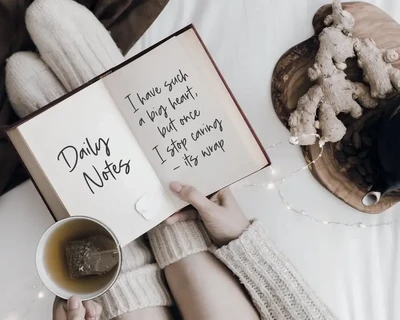 Daily
Notes
I have such
a big heart,
but once
I stop caring
- its wrap